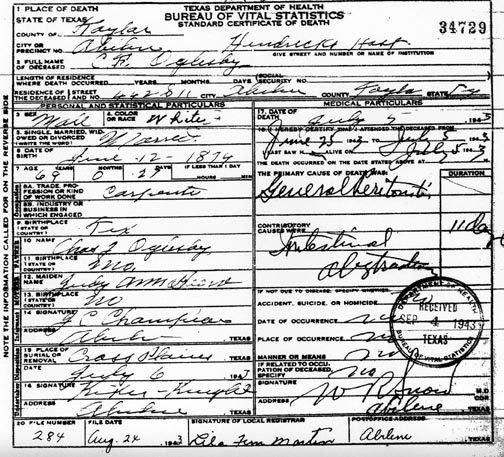 1 PLACE OF DEATH
STATE OF TEXAS
TEXAS DEPARTMENT OF HEALTH
BUREAU OF VITAL STATISTICS
STANDARD CERTIFICATE OF DEATH
34729
COUNTY OF Taylor
CITY OR PRECINCT NO. Abilene Hendricks Hosp
GIVE STREET AND NUMBER OR NAME OF INSTITUTION
2 FULL NAME OF DECEASED Oglesby
LENGTH OF RESIDENCE WHERE DEATH OCCURRED YEARS MONTHS DAYS SOCIAL SECURITY NO.
RESIDENCE OF THE DECEASED STREET AND NO. CITY Abilene COUNTY Taylor STATE
PERSONAL AND STATISTICAL PARTICULARS
MEDICAL PARTICULARS
3 SEX Male 4. COLOR OR RACE White
17. DATE OF DEATH July 5 1943
5 SINGLE, MARRIED, WIDOWED OR DIVORCED (WRITE THE WORD)
18. I HEREBY CERTIFY THAT I ATTENDED THE DECEASED FROM
June 25 1943 TO July 5 1943
6 DATE OF BIRTH June 12 - 1874
I LAST SAW H ALIVE ON July 5 1943
THE DEATH OCCURRED ON THE DATE STATED ABOVE AT M.
7 AGE YEARS 69 MONTHS 0 DAYS IF LESS THAN 1 DAY HOURS MIN
THE PRIMARY CAUSE OF DEATH WAS: DURATION
8A. TRADE, PROFESSION OR KIND OF WORK DONE Carpenter
General Peritonitis
8B. INDUSTRY OR BUSINESS IN WHICH ENGAGED
9 BIRTHPLACE (STATE OR COUNTRY) Tex
CONTRIBUTORY CAUSES WERE 11 days
10 NAME Oglesby
Intestinal
11 BIRTHPLACE (STATE OR COUNTRY) Mo.
obstruction
12 MAIDEN NAME Judy
13 BIRTHPLACE (STATE OR COUNTRY) Mo
IF NOT DUE TO DISEASE, SPECIFY WHETHER:
ACCIDENT, SUICIDE, OR HOMICIDE
14 SIGNATURE Champion
DATE OF OCCURRENCE
ADDRESS TEXAS
PLACE OF OCCURRENCE
DEPARTMENT OF HEALTH
RECEIVED
SEP 4 1943
TEXAS
BUREAU OF VITAL STATISTICS
15 PLACE OF BURIAL OR REMOVAL Cross Plains TEXAS
MANNER OR MEANS
DATE July 6 1943
IF RELATED TO OCCUPATION OF DECEASED, SPECIFY No
16 SIGNATURE
SIGNATURE W R Snow M.D.
ADDRESS Abilene TEXAS
ADDRESS Abilene TEXAS
20 FILE NUMBER FILE DATE SIGNATURE OF LOCAL REGISTRAR POSTOFFICE ADDRESS
284 Aug. 24 1943 Lila Fern Martin Abilene TEXAS
NOTE THE INFORMATION CALLED FOR ON THE REVERSE SIDE